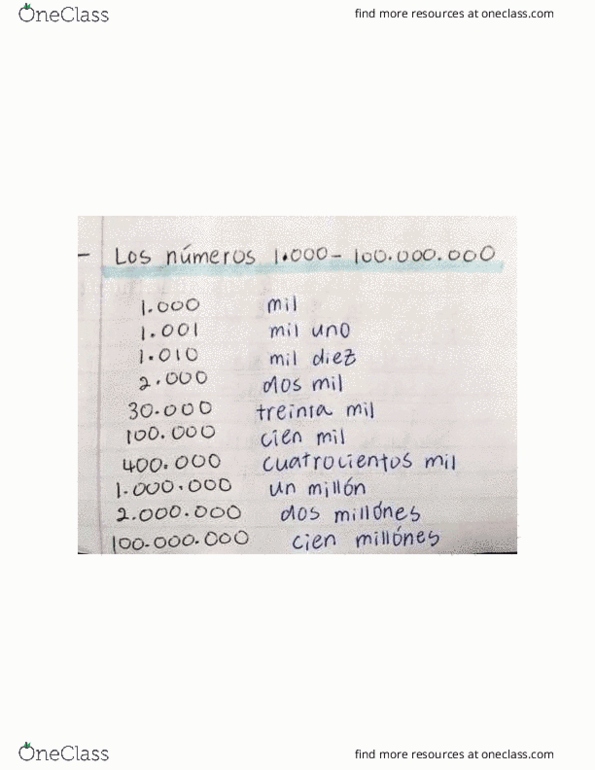 OneClass
find more resources at oneclass.com
- Los números 1.000 - 100.000.000
1.000 mil
1.001 mil uno
1.010 mil diez
2.000 dos mil
30.000 treinta mil
100.000 cien mil
400.000 cuatrocientos mil
1.000.000 un millón
2.000.000 dos millónes
100.000.000 cien millónes
OneClass
find more resources at oneclass.com